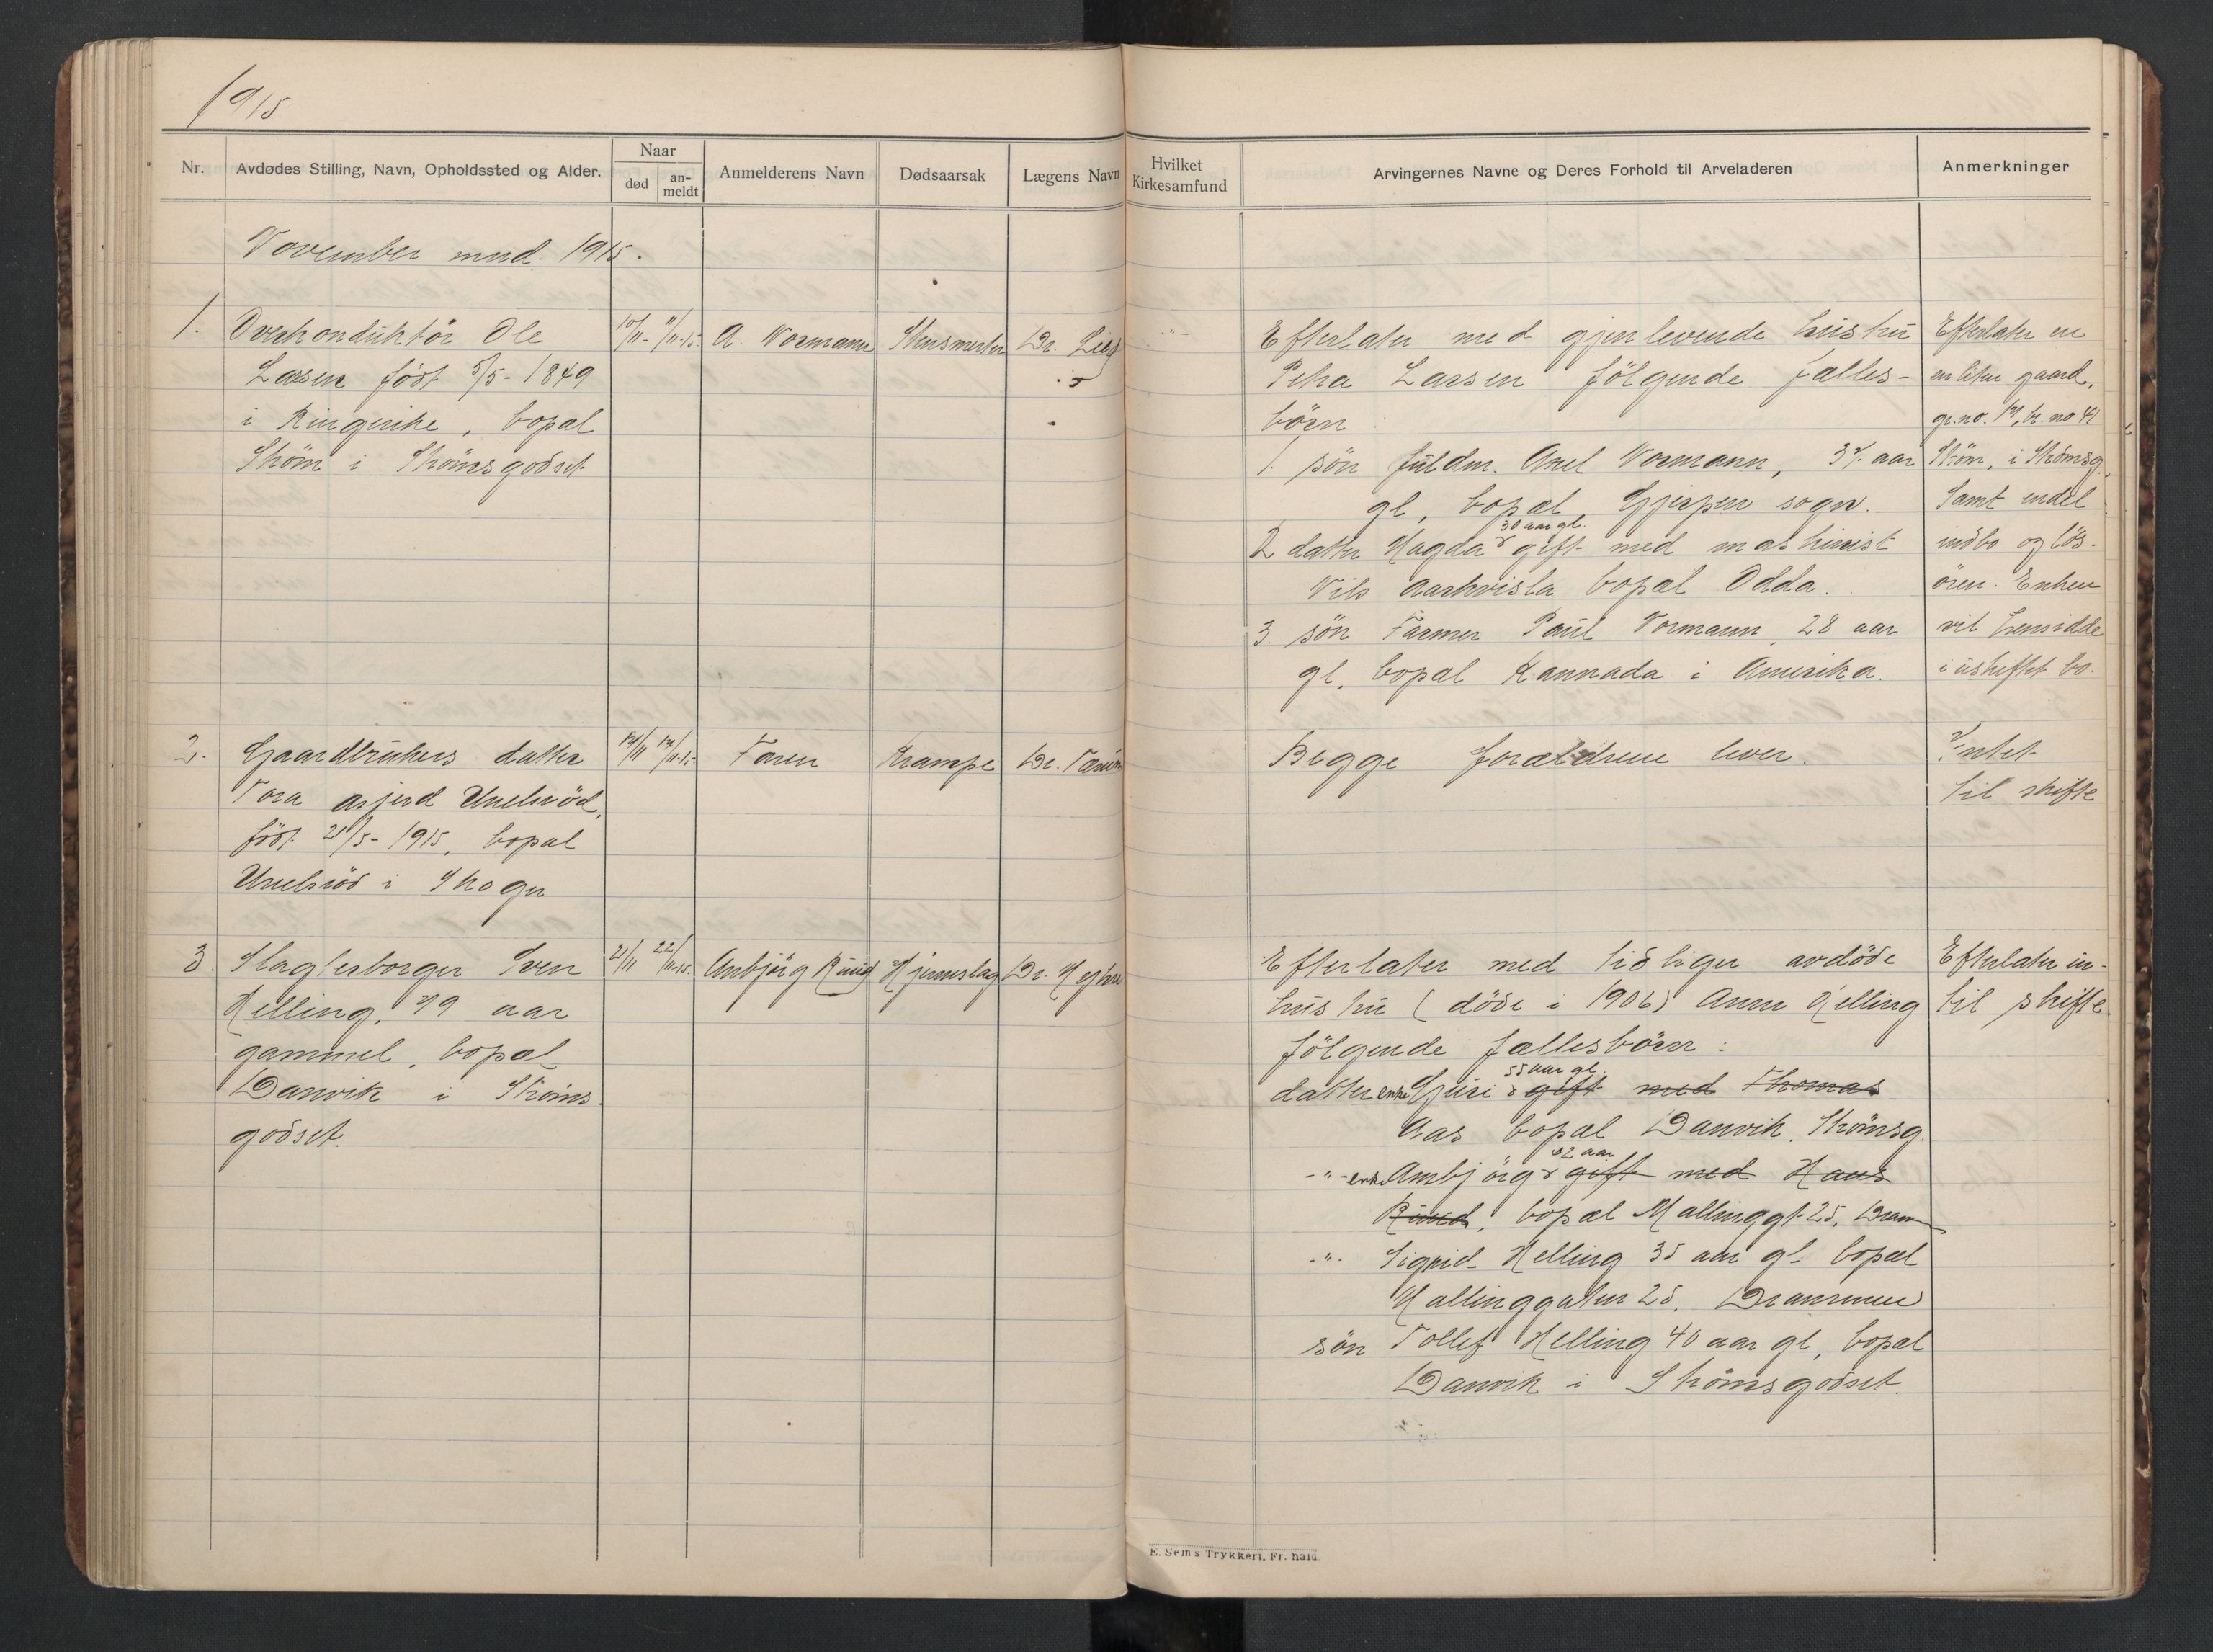 1915
Nr.
Avdødes Stilling, Navn, Opholdssted og Alder.
Naar
død
an-
meldt
Anmelderens Navn
Dødsaarsak
Lægens Navn
Hvilket
Kirkesamfund
Arvingernes Navne og Deres Forhold til Arveladeren
Anmerkninger
November mnd. 1915.
1.
Overkonduktör Ole
Larsen född 5/5 - 1849
i Ringerike, bopal
Ström i Strömsgodset
10/11 - 11/11-15
A. Normann
Dr. Lie
Efterlater med gjenlevende hustru
Petra Larsen følgende fælles-
børn :
1. sön fuldm. Axel Normann, aar
gl, bopæl, Gjerpen sogn.
30 aar gl.
2 datter Magda gift med maskinist
Nils bopæl Odda.
3. sön Farmer Paul Normann, 28 aar
gl, bopæl Kannada i Amerika.
Efterlater en
en liten gaard,
gr.no. br. no 41
Ström, i Strömsg.
Samt endel
indbo og lös-
öre. Enken
vil hensidde
i uskiftet bo.
2.
Gaardbrukers datter
Tora Asjerd Unelsröd,
född 21/5 - 1915, bopæl
Unelsröd i Skoger
Faren
Krampe
Begge foræeldrene lever.
Intet
til skifte
3.
Slagterborger Sven
Helling, 79 aar
gammel, bopæl
Danvik i Ströms-
godset.
21/11 22/11-15.
Ambjörg Ruud
Hjerneslag
Efterlater med tidliger avdöde
hustru (döde i 1906) Anne Helling
følgende fællesbörn :
55 aar gl.
datter enke Guri gift med Thomas
Aas bopæl Danvik, Strömsg.
52 aar
-"- enke Ambjörg gift med Hans
Ruud, bopæl Hallinggt. 25, Dram
-"- Sigrid Helling 35 aar gl. bopæl
Hallinggaten 25, Drammen
sön Tollef Helling 40 aar gl, bopæl
Danvik i Strömsgodset.
Efterlater in-
til skifte.
E. Sem's Trykkeri, Fr.hald